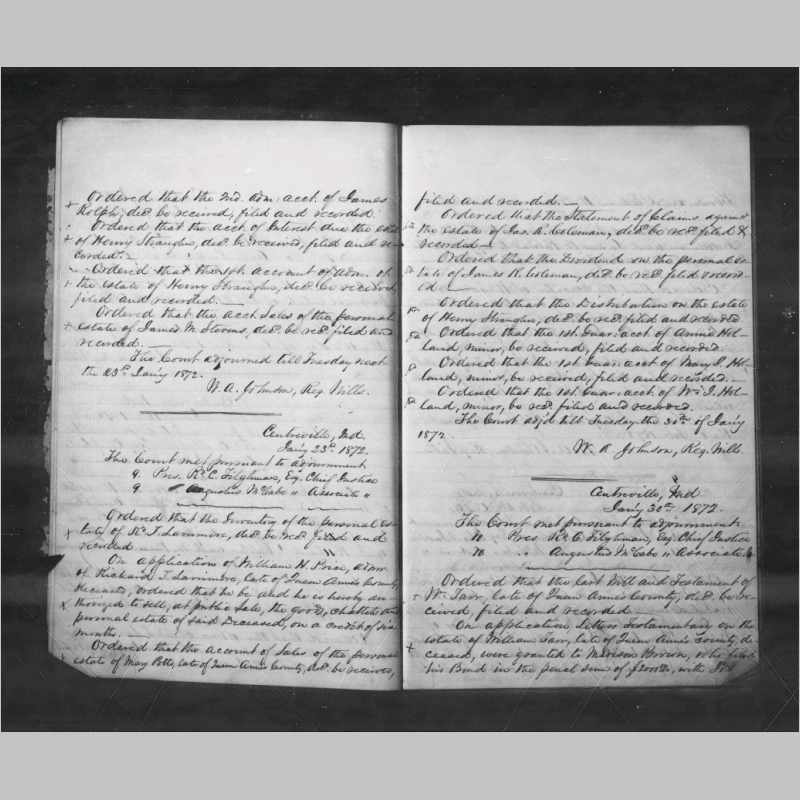 Ordered that the 2nd. Adm: acct. of James
Rolph, decd. be received, filed and recorded.
Ordered that the acct. of Interest due the est.
of Henry Straughn, decd. be received, filed and re-
corded. —
Ordered that the 1st. account of Adm. of
the estate of Henry Straughn, decd. be received
filed and recorded. —
Ordered that the acct. Sales of the personal
estate of James M. Stevens, decd. be recd. filed and
recorded. —
The Court adjourned till Tuesday next
the 23d. Jan'y 1872.
W. A. Johnson, Reg. Wills.
Centreville, Md
Jan'y 23d. 1872.
The Court met pursuant to adjournment
9. Pres. R. C. Tilghman, Esq. Chief Justice
9. " Augustus McCabe " Associate "
Ordered that the Inventory of the personal es-
tate of R. T. Larrimore, decd. be recd. filed and
recorded —
On application of William H. Price, adm.
of Richard T. Larrimore, late of Queen Anne's County,
deceased, ordered that he be and he is hereby au-
thorized to sell, at public sale, the goods, chattels and
personal estate of said Deceased, on a credit of six
months. —
Ordered that the account of Sales of the personal
estate of Mary Potts, late of Queen Anne's County, decd. be received,
filed and recorded. —
Ordered that the Statement of Claims against
the estate of Jas. R. Coleman, decd. be recd. filed &
recorded —
Ordered that the Dividend on the personal es-
tate of James R. Coleman, decd. be recd. filed & record-
ed —
Ordered that the Distribution on the estate
of Henry Straughn, decd. be recd. filed and recorded
Ordered that the 1st. Guar: acct. of Annie Hol-
land, minor, be received, filed and recorded.
Ordered that the 1st. Guar: acct. of Mary I. Hol-
land, minor, be received, filed and recorded. —
Ordered that the 1st. Guar: acct. of Wm. I. Hol-
land, minor, be recd. filed and recorded.
The Court adjd. till Tuesday the 30th. of Jan'y
1872.
W. A. Johnson, Reg. Wills
Centreville, Md
Jan'y 30th. 1872.
The Court met pursuant to adjournment
10. Pres. R. C. Tilghman, Esq. Chief Justice
10. " Augustus McCabe " Associate
Ordered that the Last Will and Testament of
Wm. Tarr, late of Queen Anne's County, decd. be re-
ceived, filed and recorded
On application, Letters Testamentary on the
estate of William Tarr, late of Queen Anne's County, de-
ceased, were granted to Marison Brown, who filed
his Bond in the penal sum of $2000, with